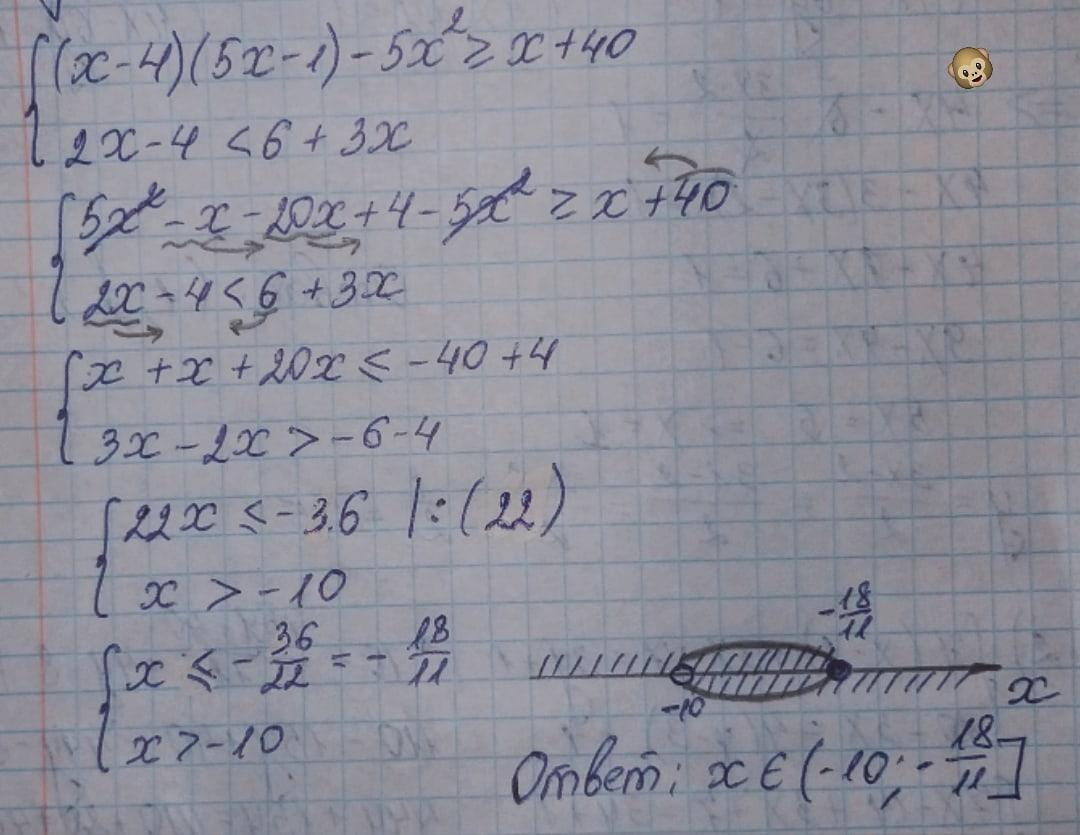 (x-4)(5x-1)-5x²≥x+40
2x-4<6+3x
5x²-x-20x+4-5x²≥x+40
2x-4<6+3x
x+x+20x≤-40+4
3x-2x>-6-4
22x≤-36 |:(22)
x>-10
x≤-36/22=-18/11
x>-10
-18/11
-10
x
Ответ: x∈(-10;-18/11]